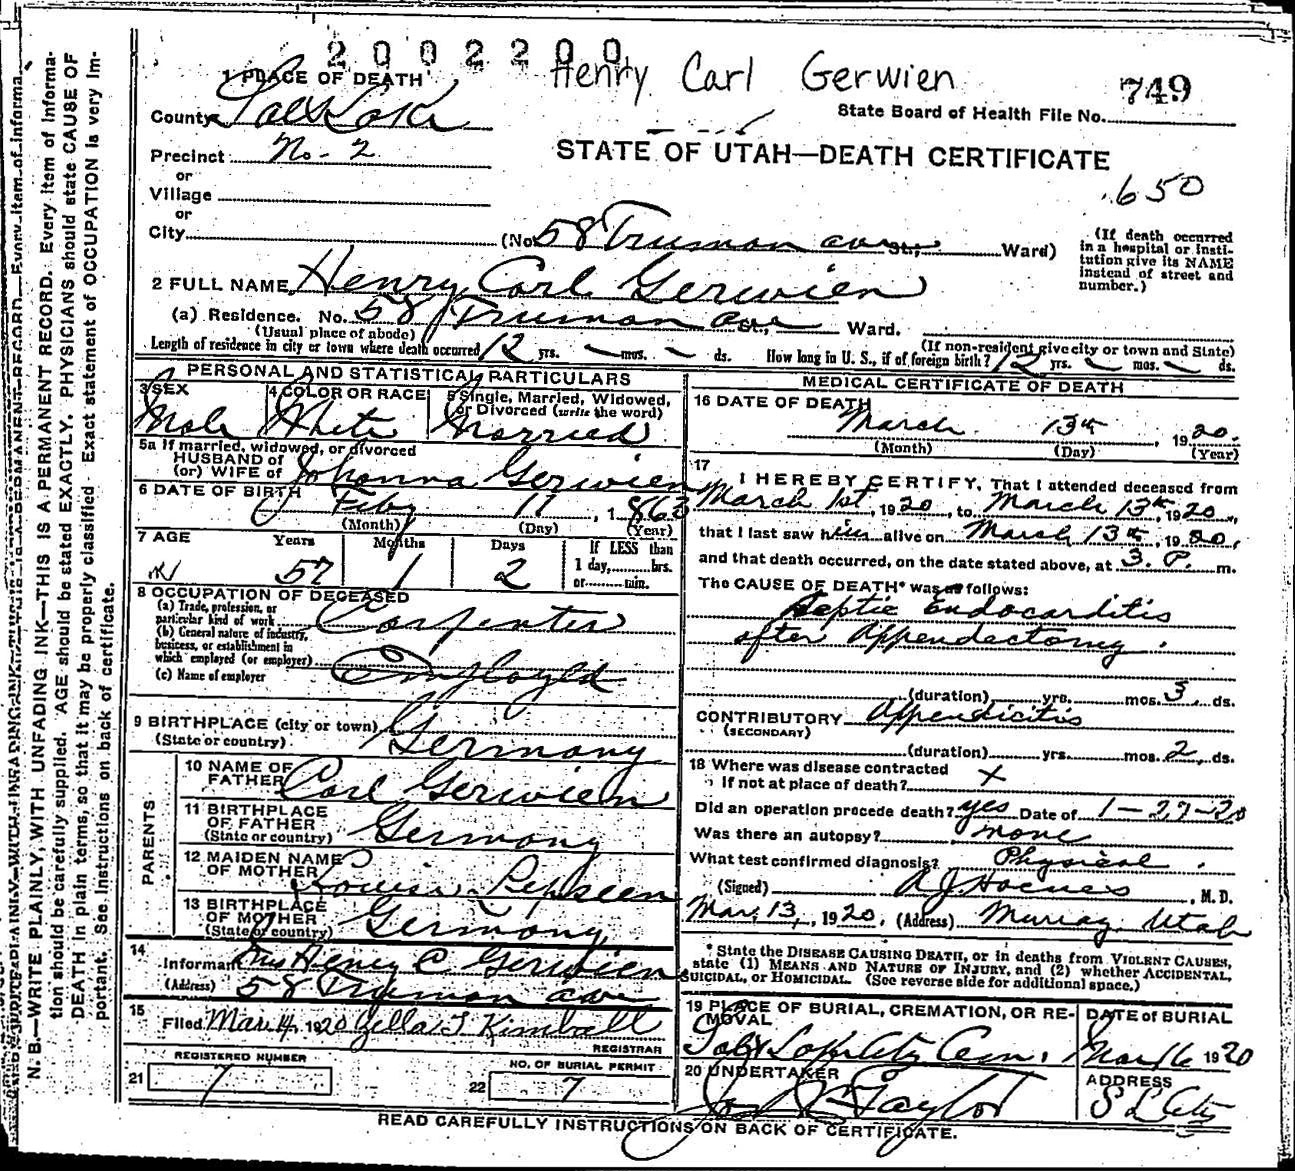 2002200
Henry Carl Gerwien
749
State Board of Health File No.
1 PLACE OF DEATH
County Salt Lake
Precinct No. 2
or
Village
or
City
STATE OF UTAH—DEATH CERTIFICATE
650
(No. 58 Truman ave St., Ward)
(If death occurred in a hospital or institution give its NAME instead of street and number.)
2 FULL NAME Henry Carl Gerwien
(a) Residence. No. 58 Truman ave St., Ward.
(Usual place of abode)
(If non-resident give city or town and State)
Length of residence in city or town where death occurred 12 yrs. — mos. — ds. How long in U. S., if of foreign birth? 12 yrs. — mos. — ds.
PERSONAL AND STATISTICAL PARTICULARS
3 SEX
Male
4 COLOR OR RACE
White
5 Single, Married, Widowed, or Divorced (write the word)
Married
5a If married, widowed, or divorced
HUSBAND of
(or) WIFE of Johanna Gerwien
6 DATE OF BIRTH Feby 11, 1863
(Month) (Day) (Year)
7 AGE Years Months Days If LESS than
1 day, hrs.
or min.
57 1 2
8 OCCUPATION OF DECEASED
(a) Trade, profession, or
particular kind of work Carpenter
(b) General nature of industry,
business, or establishment in
which employed (or employer) Employed
(c) Name of employer
9 BIRTHPLACE (city or town)
(State or country) Germany
PARENTS
10 NAME OF
FATHER Carl Gerwien
11 BIRTHPLACE
OF FATHER
(State or country) Germany
12 MAIDEN NAME
OF MOTHER Louisa Lepseen
13 BIRTHPLACE
OF MOTHER
(State or country) Germany
14
Informant Mrs Henry C Gerwien
(Address) 58 Truman ave
15
Filed Mar 14, 1920 Zella T Kimball
REGISTRAR
REGISTERED NUMBER
21 7
NO. OF BURIAL PERMIT
22 7
MEDICAL CERTIFICATE OF DEATH
16 DATE OF DEATH
March 13th, 1920.
(Month) (Day) (Year)
17
I HEREBY CERTIFY, That I attended deceased from
March 1st, 1920, to March 13th, 1920,
that I last saw him alive on March 13th, 1920,
and that death occurred, on the date stated above, at 3. P. m.
The CAUSE OF DEATH* was as follows:
Septic Endocarditis
after Appendectomy.
(duration) yrs. mos. 3 ds.
CONTRIBUTORY Appendicitis
(SECONDARY)
(duration) yrs. mos. 2 ds.
18 Where was disease contracted
if not at place of death? X
Did an operation precede death? yes Date of 1-27-20
Was there an autopsy? none
What test confirmed diagnosis? Physical.
(Signed) , M. D.
Mar. 13, 1920, (Address) Murray, Utah
* State the DISEASE CAUSING DEATH, or in deaths from VIOLENT CAUSES,
state (1) MEANS AND NATURE OF INJURY, and (2) whether ACCIDENTAL,
SUICIDAL, or HOMICIDAL. (See reverse side for additional space.)
19 PLACE OF BURIAL, CREMATION, OR REMOVAL
Salt Lake City Cem.
DATE of BURIAL
Mar 16 1920
20 UNDERTAKER
Taylor
ADDRESS
S L City
READ CAREFULLY INSTRUCTIONS ON BACK OF CERTIFICATE.
N. B.—WRITE PLAINLY, WITH UNFADING INK—THIS IS A PERMANENT RECORD. Every item of information should be carefully supplied. AGE should be stated EXACTLY. PHYSICIANS should state CAUSE OF DEATH in plain terms, so that it may be properly classified. Exact statement of OCCUPATION is very important. See instructions on back of certificate.